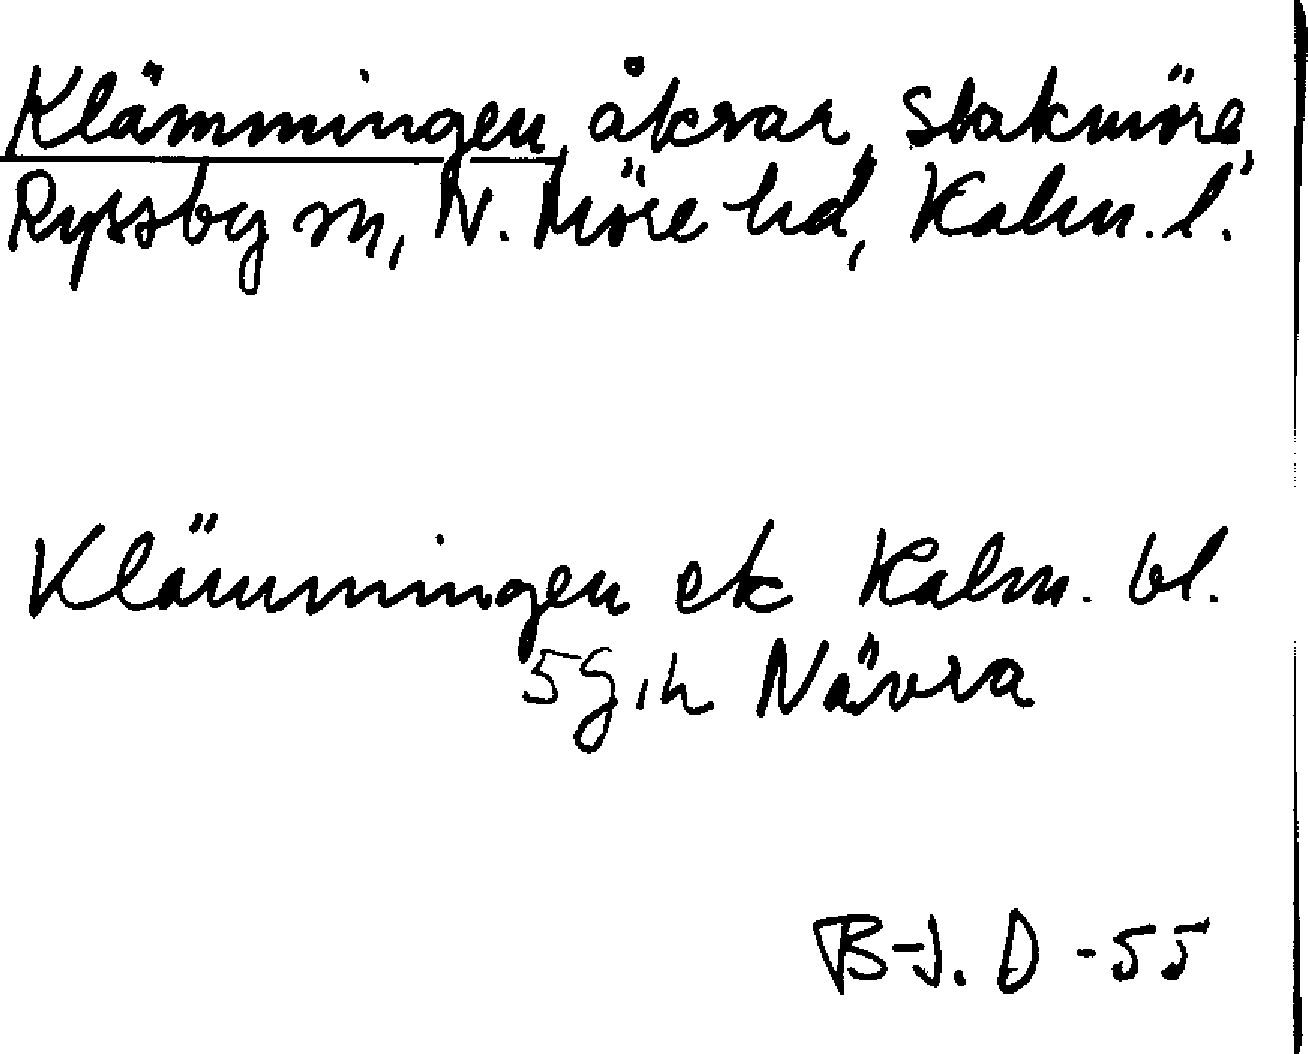 Klämmingen, åkrar, Stakmöre,
Ryssby sn, N. Möre hd, Kalm. l.
Klämmingen ek Kalm. bl.
5 g, h Nävra
B-J. D -55